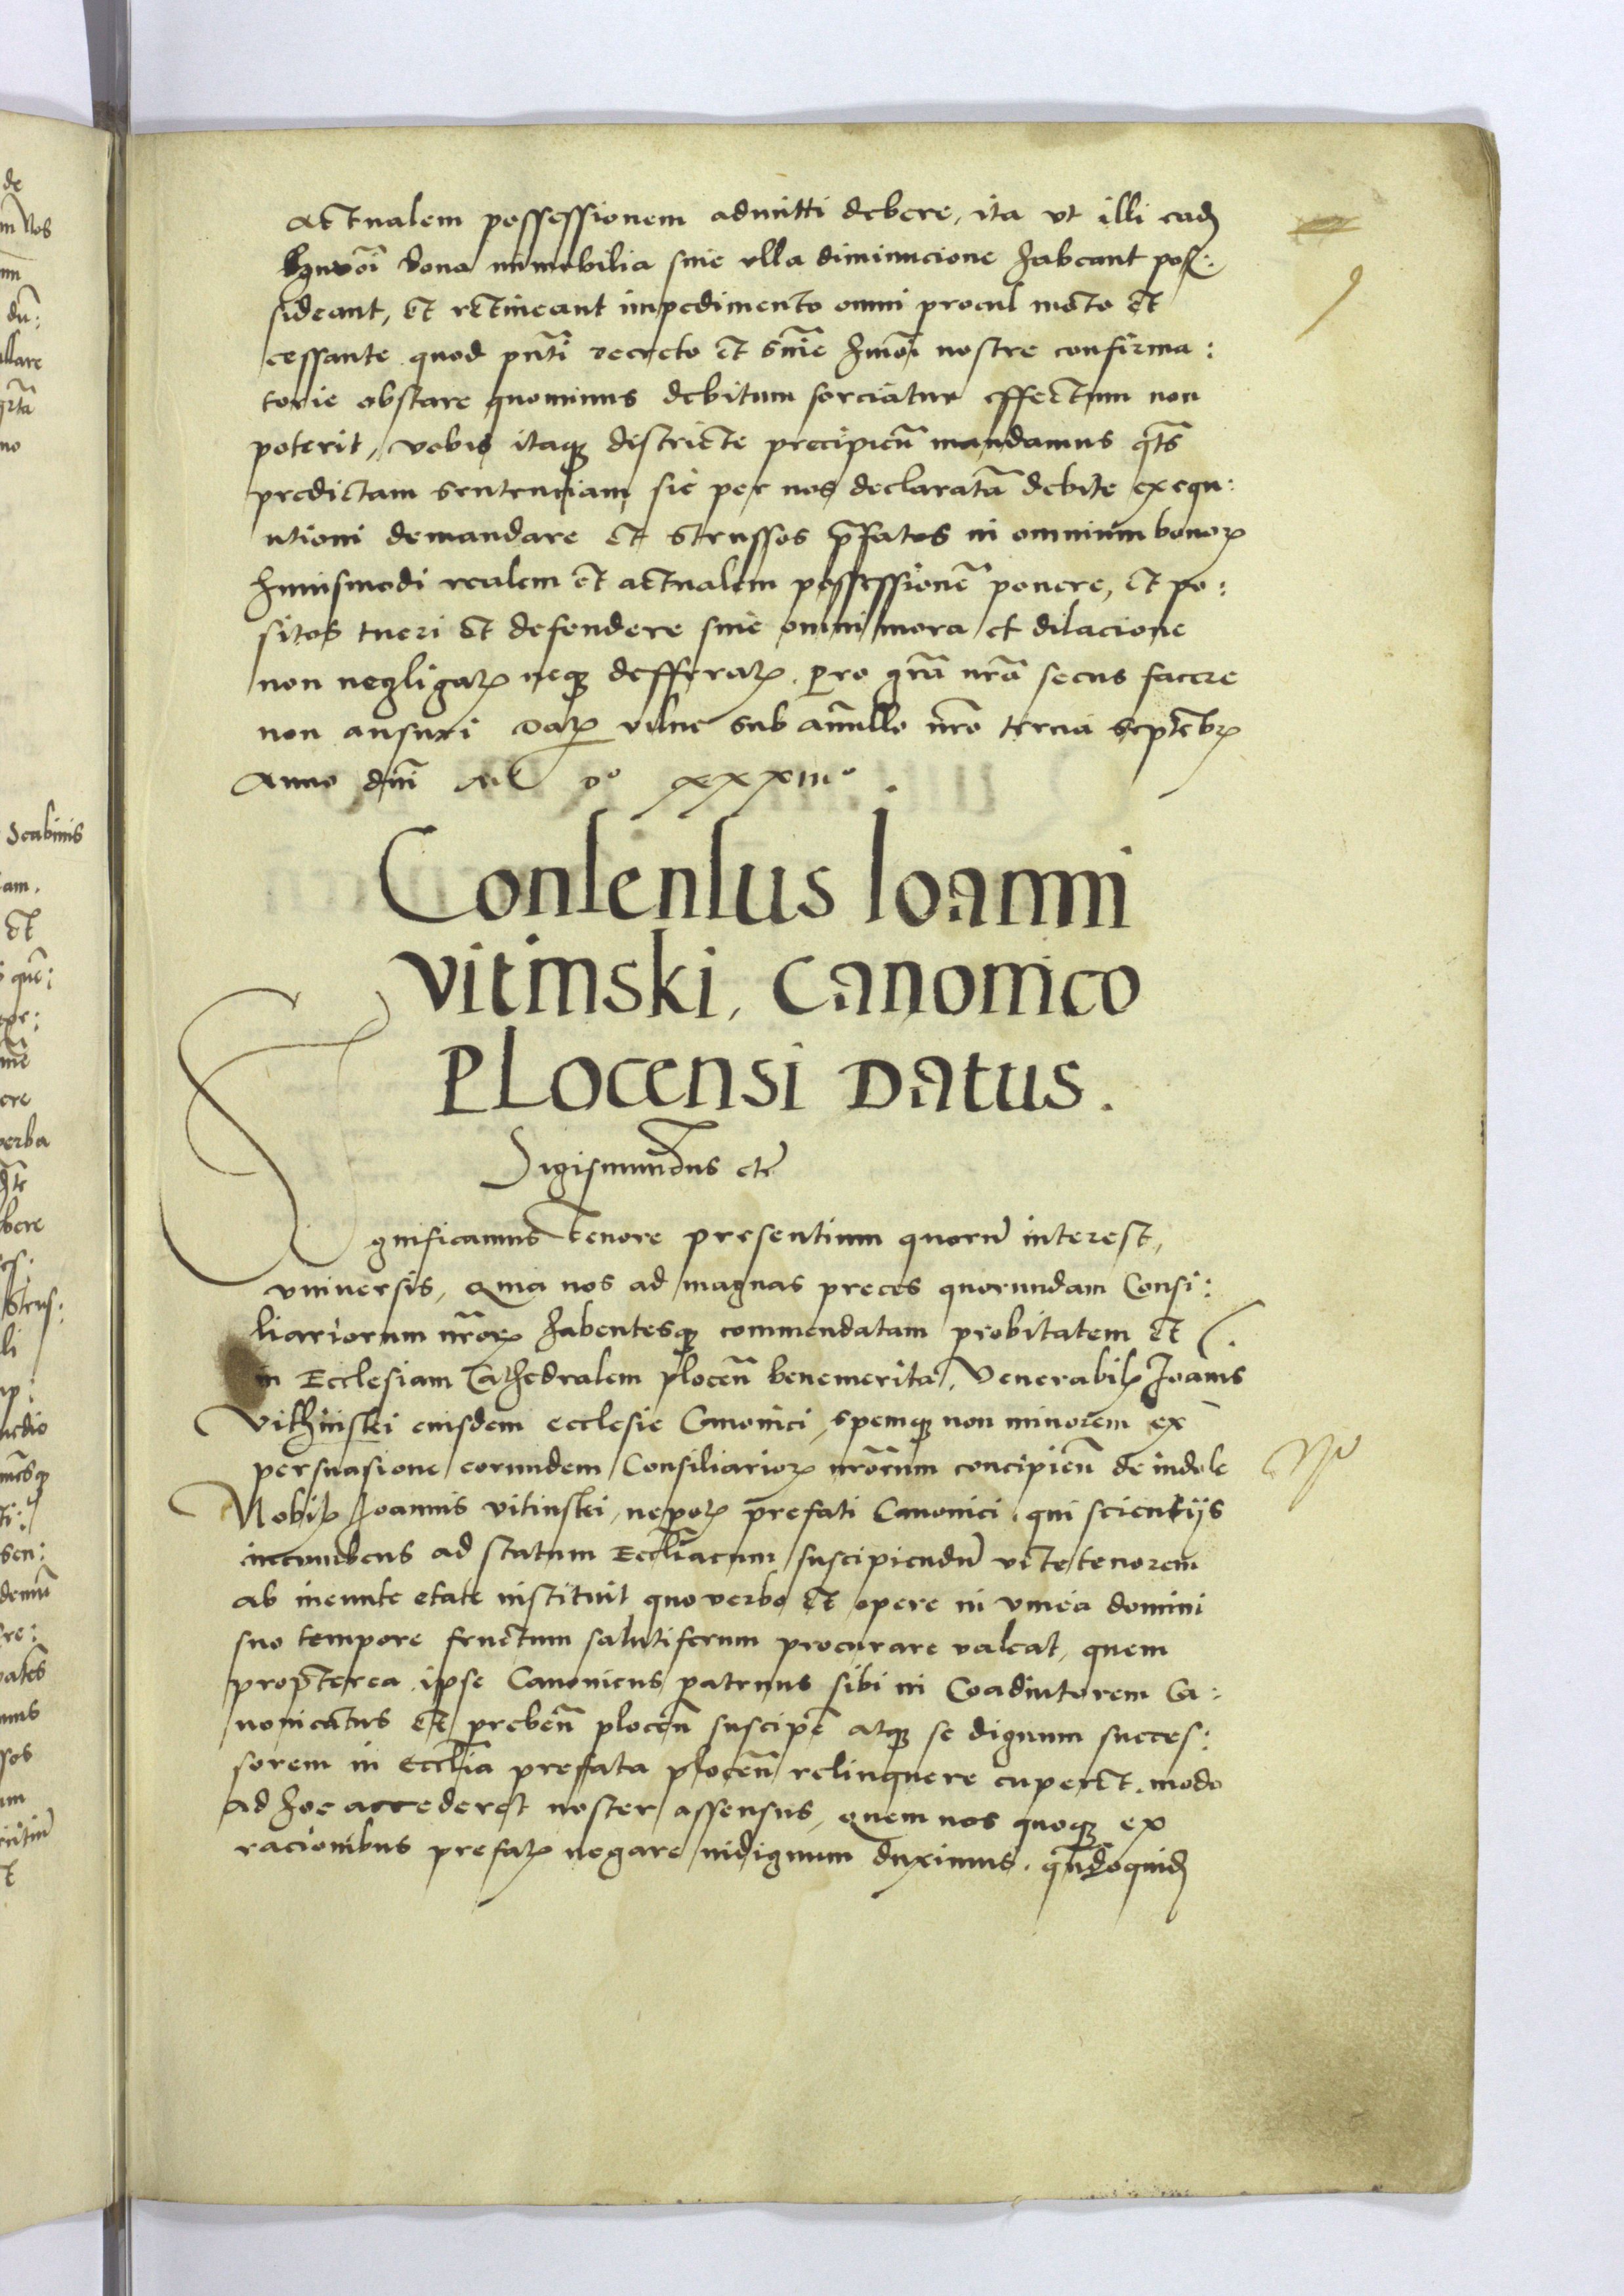 actualem possessionem admitti debere, ita ut illi ead
bona immobilia sine ulla diminucione habeant pos:
sideant, et retineant impedimento omni procul moto et
cessante quod pnti decreto et snie hmoi nostre confirma:
torie obstare quominus debitum sorciatur effectum non
poterit, vobis itaq districte precipien mandamus qts
predictam sentenciam sic per nos declaratã debite exequ:
utioni demandare et Strussos pfatos in omnium bonor
huiusmodi realem et actualem possessionẽ ponere, et po:
sitos tueri et defendere sine omni mora et dilacione
non negligat neq defferat. pro grã nrã secus facere
non ansuri Dat vilne sub annullo nro tercia Septebr
Anno dni M D° xxxiii°.
Consensus Ioanni
vitinski, canonico
Plocensi Datus.
Sigismundus etc
Significamus tenore presentium quorũ interest,
universis, Quia nos ad magnas preces quorundam Consi:
liariorum nror habentesq commendatam probitatem et
in Ecclesiam Cathedralem plocen benemerita, Venerabil Joanis
Vithinski eiusdem ecclesie Canonici, spemq non minorem ex
persuasione eorundem Consiliarior nrorum concipien de indole
Nobil Joannis vitinski, nepot prefati Canonici qui scientiis
incumbens ad statum Eccliacum suscipiendũ vite tenorem
ab ineunte etate instituit quo verbo et opere in vinea domini
suo tempore fructum salutiferum procurare valeat, quem
propterea ipse Canonicus patruus sibi in Coadiutorem Ca:
nonicatus et preben plocen suscipe atq se dignum succes:
sorem in Ecclia prefata plocen relinquere cuperet. modo
ad hoc accederet noster assensus, quem nos quoq ex
racionibus prefat negare indignum duximus. qndoquid
9